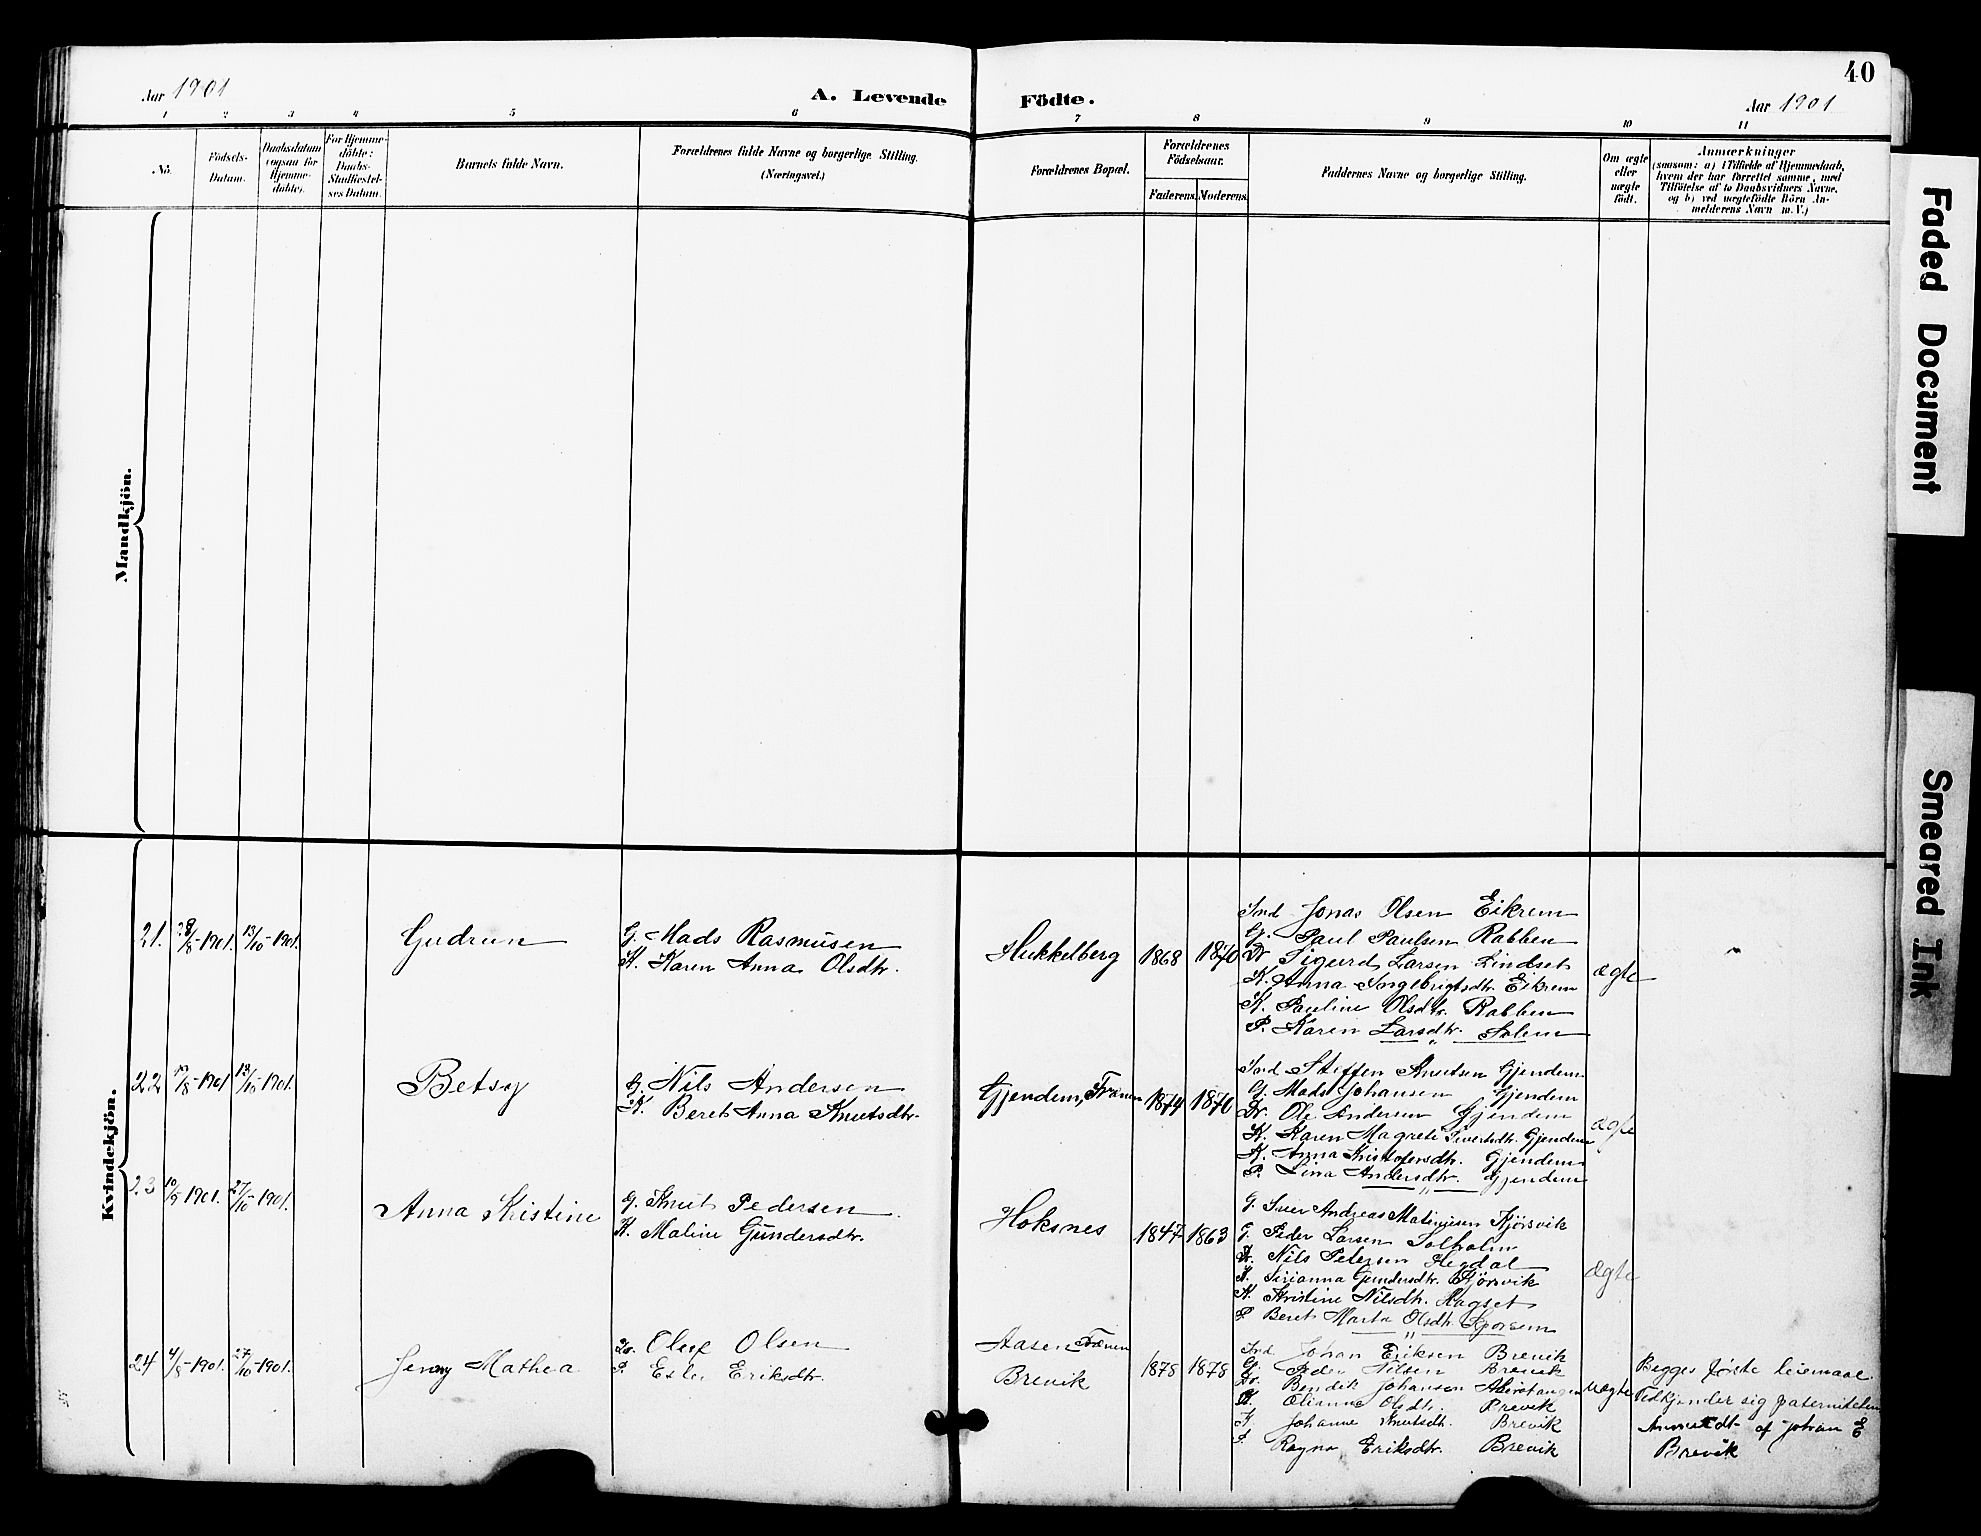 40
Aar 1901
A. Levende Födte.
Aar 1901
1 2 3 4 5 6 7 8 9 10 11
No.
Födsels-Datum.
Daabsdatum (ogsaa for Hjemme-döbte).
For Hjemme-döbte: Daabs-Stadfæstel-ses Datum.
Barnets fulde Navn.
Forældrenes fulde Navne og borgerlige Stilling. (Næringsvei.)
Forældrenes Bopæl.
Forældrenes Födselsaar.
Faderens. Moderens.
Faddernes Navne og borgerlige Stilling.
Om ægte eller uægte födt.
Anmærkninger
(saasom: a) i Tilfælde af Hjemmedaab,
hvem der har forrettet samme, med
Tilföielse af to Daabsvidners Navne,
og b) ved uægtefödte Börn An-
melderens Navn m. V.)
Mandkjön.
Kvindekjön.
21. 28/8-1901. 13/10-1901. Gudrun
G. Mads Rasmusen
K. Karen Anna Olsdtr.
Hukkelberg 1868 1870
Ind Jonas Olsen Eikrem
G. Paul Paulsen Rabben
Dr Sigurd Larsen Lindset
K. Anna Ingebrigtsdtr. Eikrem
K. Pauline Olsdtr. Rabben
P. Karen Larsdtr. Solem
ægte
22 17/8-1901 13/10-1901. Betsy
G. Nils Andersen
K. Beret Anna Knutsdtr.
Gjendem, Frænen 1874 1870
Ind Steffen Knutsen Gjendem
G. Mads Johansen Gjendem
Dr. Ole Andersen Gjendem
K. Karen Magrete Sivertsdtr. Gjendem
K. Anna Kristofersdtr. Gjendem
P. Lina Andersdtr. Gjendem
ægte
23 10/9 1901. 27/10-1901. Anna Kristine
G. Knut Pedersen
K. Maline Gundersdtr.
Hoksnes 1847 1863
G. Iver Andreas Matiusen Hjørsvik
G. Peder Larsen Solholm
Nils Petersen Hegdal
K. Sirianna Gundersdtr. Hjørsvik
K. Kristine Nilsdtr. Hagset
P. Beret Marta Olsdtr.
ægte
24 4/8-1901. 27/10-1901. Jenny Mathea
Oluf Olsen
P. Eriksdtr.
Aasen Frænen
Brevik 1878 1878
Ind. Johan Eriksen Brevik
G. Peder Nilsen Brevik
Bendik Johansen
K. Olianna Olsdtr. Brevik
Johanne Knutsdt. Brevik
P. Ragna Eriksdtr. Brevik
uægte
Begges første leiermaal.
Vedkjender sig paterniteten
Anmeldt af Johan E
Brevik
Faded Document
Smeared Ink